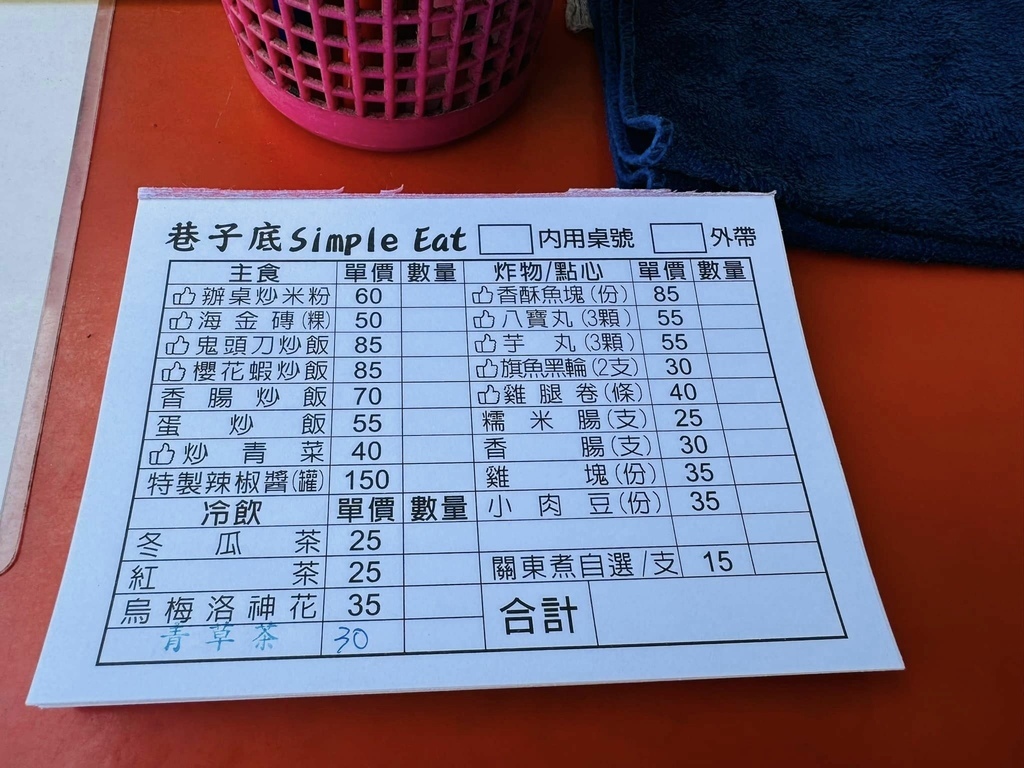 巷子底Simple Eat 內用桌號 外帶
主食 單價 數量 炸物/點心 單價 數量
辦桌炒米粉 60 香酥魚塊(份) 85
海金磚(粿) 50 八寶丸(3顆) 55
鬼頭刀炒飯 85 芋丸(3顆) 55
櫻花蝦炒飯 85 旗魚黑輪(2支) 30
香腸炒飯 70 雞腿卷(條) 40
蛋炒飯 55 糯米腸(支) 25
炒青菜 40 香腸(支) 30
特製辣椒醬(罐) 150 雞塊(份) 35
冷飲 單價 數量 小肉豆(份) 35
冬瓜茶 25
紅茶 25 關東煮自選/支 15
烏梅洛神花 35 合計
青草茶 30